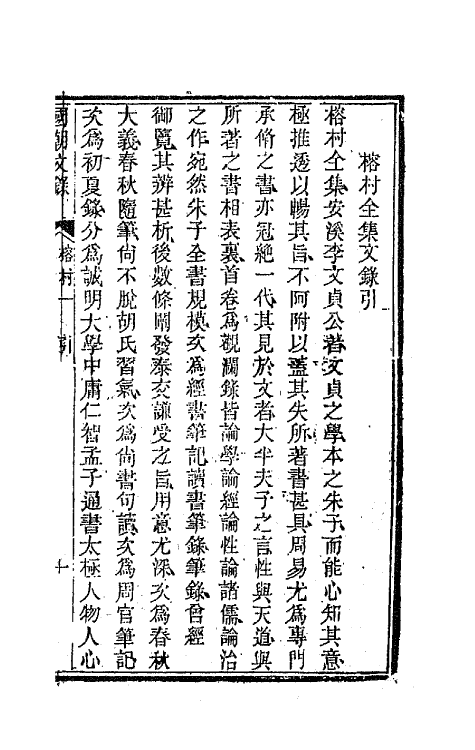 榕村全集文錄引
榕村全集安溪李文貞公著文貞之學本之朱子而能心知其意
極推透以暢其旨不阿附以蓋其失所著書甚具周易尤爲專門
承脩之書亦冠絶一代其見於文者大半夫子之言性與天道與
所著之書相表裏首卷爲觀瀾錄皆論學論經論性論諸儒論治
之作宛然朱子全書規模次爲經書筆記讀書筆錄筆錄曾經
御覽其辨甚析後數條闡發泰交謙受之旨用意尤深次爲春秋
大義春秋隨筆尙不脫胡氏習氣次爲尙書句讀次爲周官筆記
次爲初夏錄分爲誠明大學中庸仁智孟子通書太極人物人心
國朝文錄
榕村一
引
十